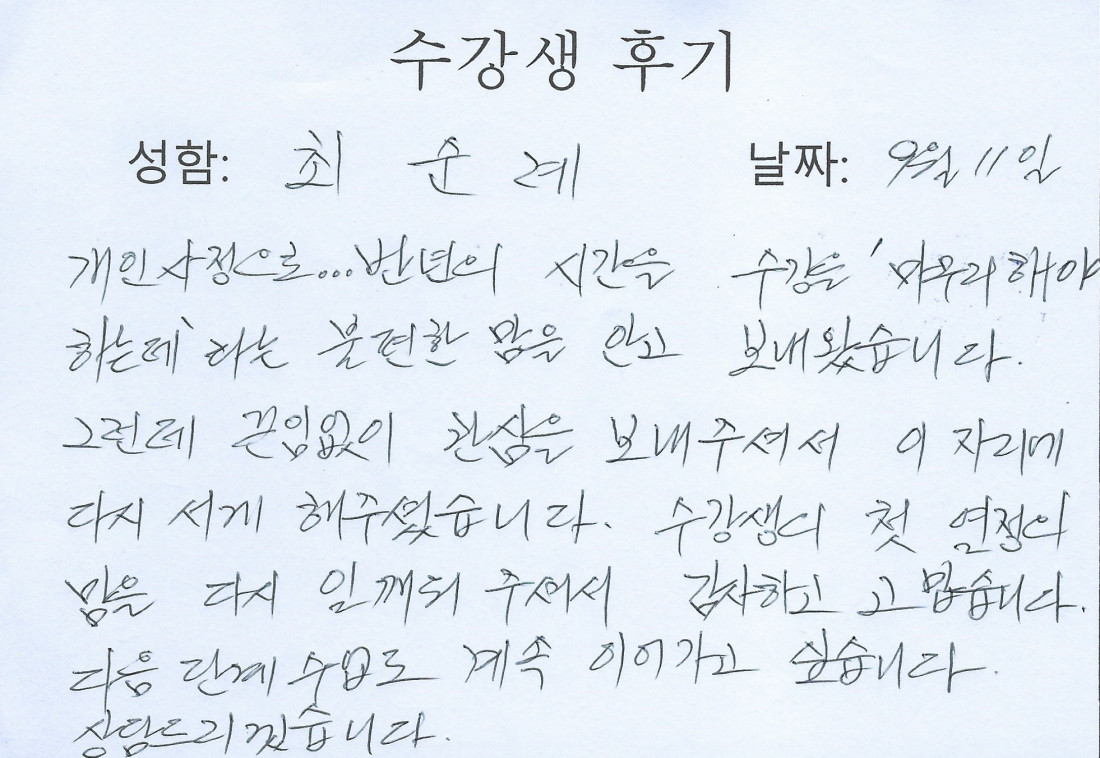 수강생 후기
성함: 최 순 례 날짜: 9월 11일
개인사정으로...반년의 시간을 수강을 '마무리해야
하는데' 라는 불편한 맘을 안고 보내왔습니다.
그런데 끈임없이 관심을 보내주셔서 이 자리에
다시 서게 해주셨습니다. 수강생의 첫 열정의
맘을 다시 일깨워 주셔서 감사하고 고맙습니다.
다음 단계 수업도 계속 이어가고 싶습니다.
상담드리겠습니다.